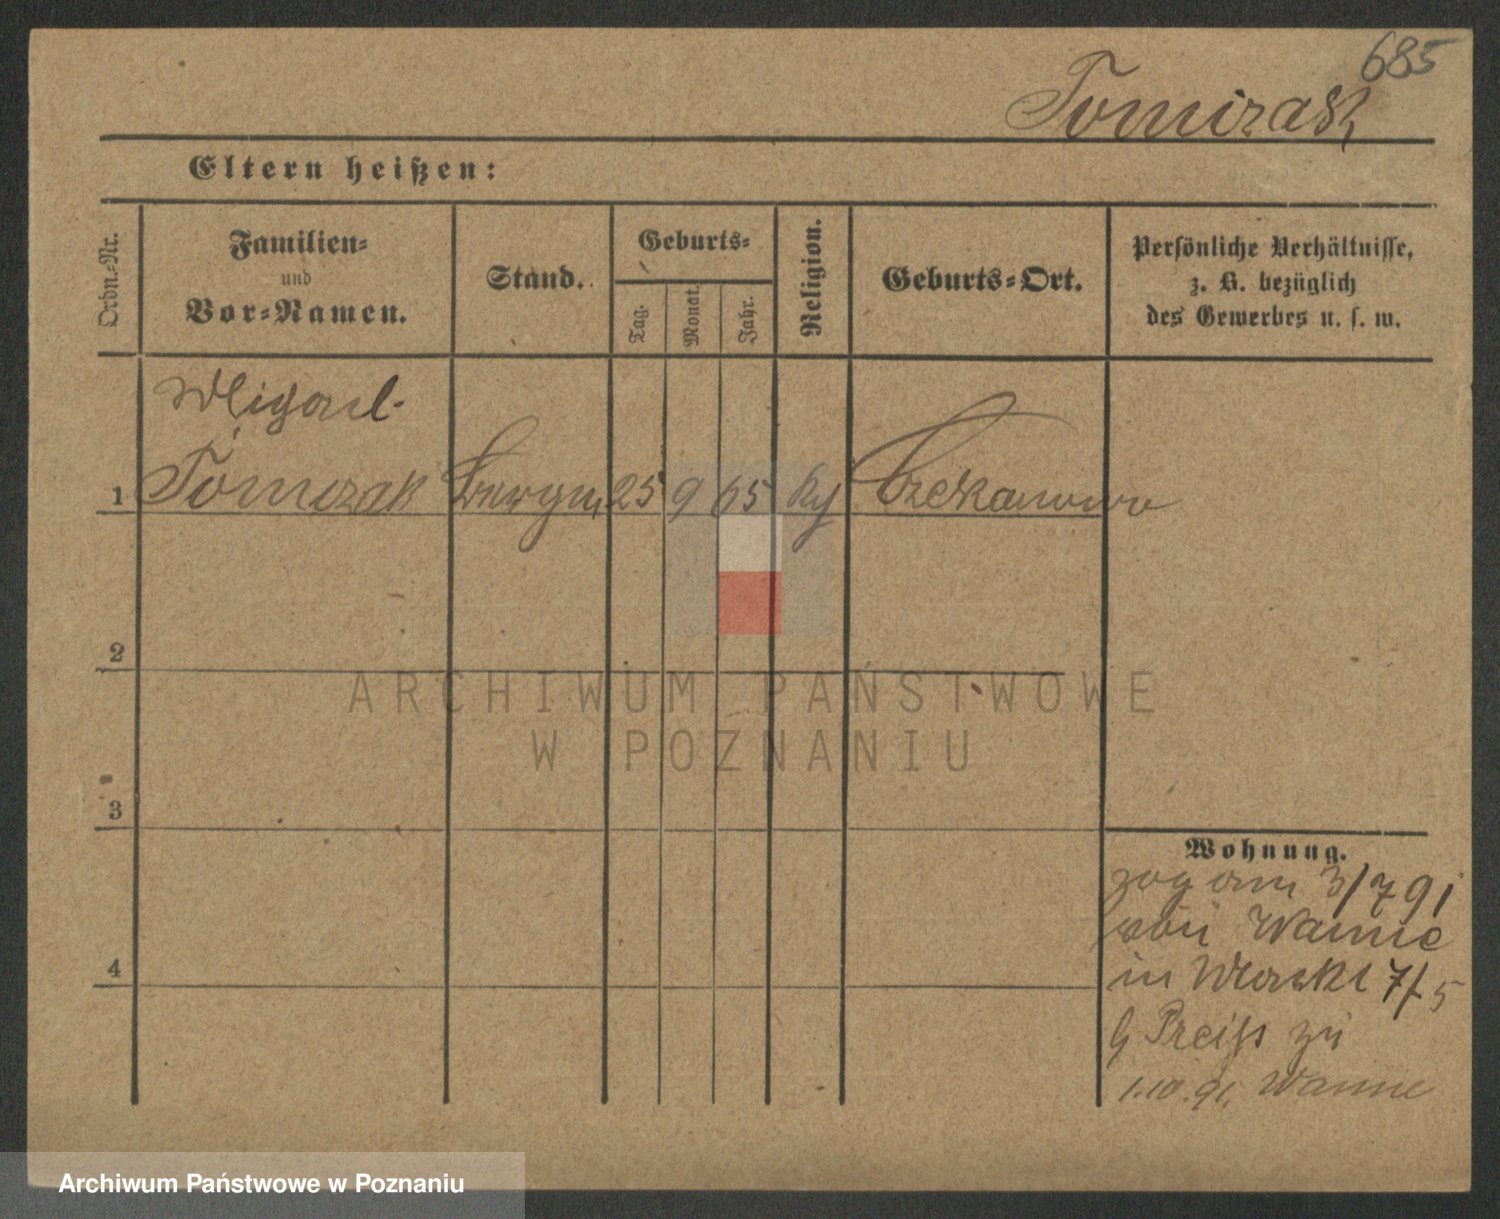 685
Tomczak
Eltern heißen:
Ordn.-Nr.
Familien-
und
Vor-Namen.
Stand.
Geburts-
Tag.
Monat.
Jahr.
Religion.
Geburts-Ort.
Persönliche Verhältnisse,
z. B. bezüglich
des Gewerbes u. s. w.
Michael
1 Tomczak Bergm 25 9 65 Czekanowo
2
3
4
Wohnung.
zog am 3/7 91
von Wanne
in 7/5
G Preiß zu
1.10.91. Wanne
ARCHIWUM PAŃSTWOWE
W POZNANIU
Archiwum Państwowe w Poznaniu